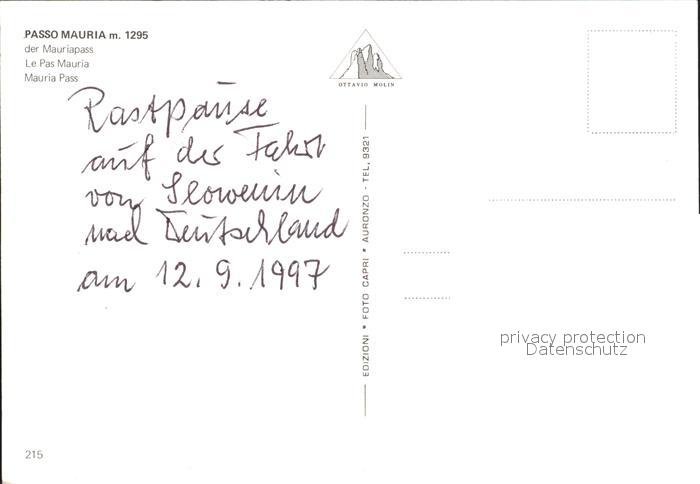 PASSO MAURIA m. 1295
der Mauriapass
Le Pas Mauria
Mauria Pass
OTTAVIO MOLIN
Rastpause
auf der Fahrt
von Slowenien
nach Deutschland
am 12. 9. 1997
EDIZIONI * FOTO CAPRI * AURONZO - TEL. 9321
privacy protection
Datenschutz
215